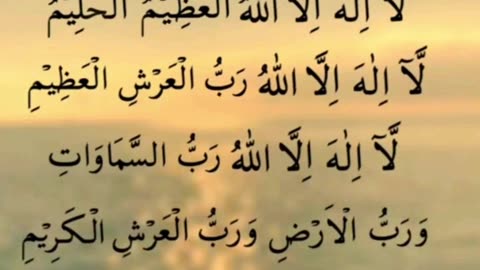 لَا اِلٰهَ اِلَّا اللهُ الْعَظِيْمُ الْحَلِيْمُ
لَآ اِلٰهَ اِلَّا اللهُ رَبُّ الْعَرْشِ الْعَظِيْمِ
لَآ اِلٰهَ اِلَّا اللهُ رَبُّ السَّمَاوَاتِ
وَرَبُّ الْاَرْضِ وَرَبُّ الْعَرْشِ الْكَرِيْمِ